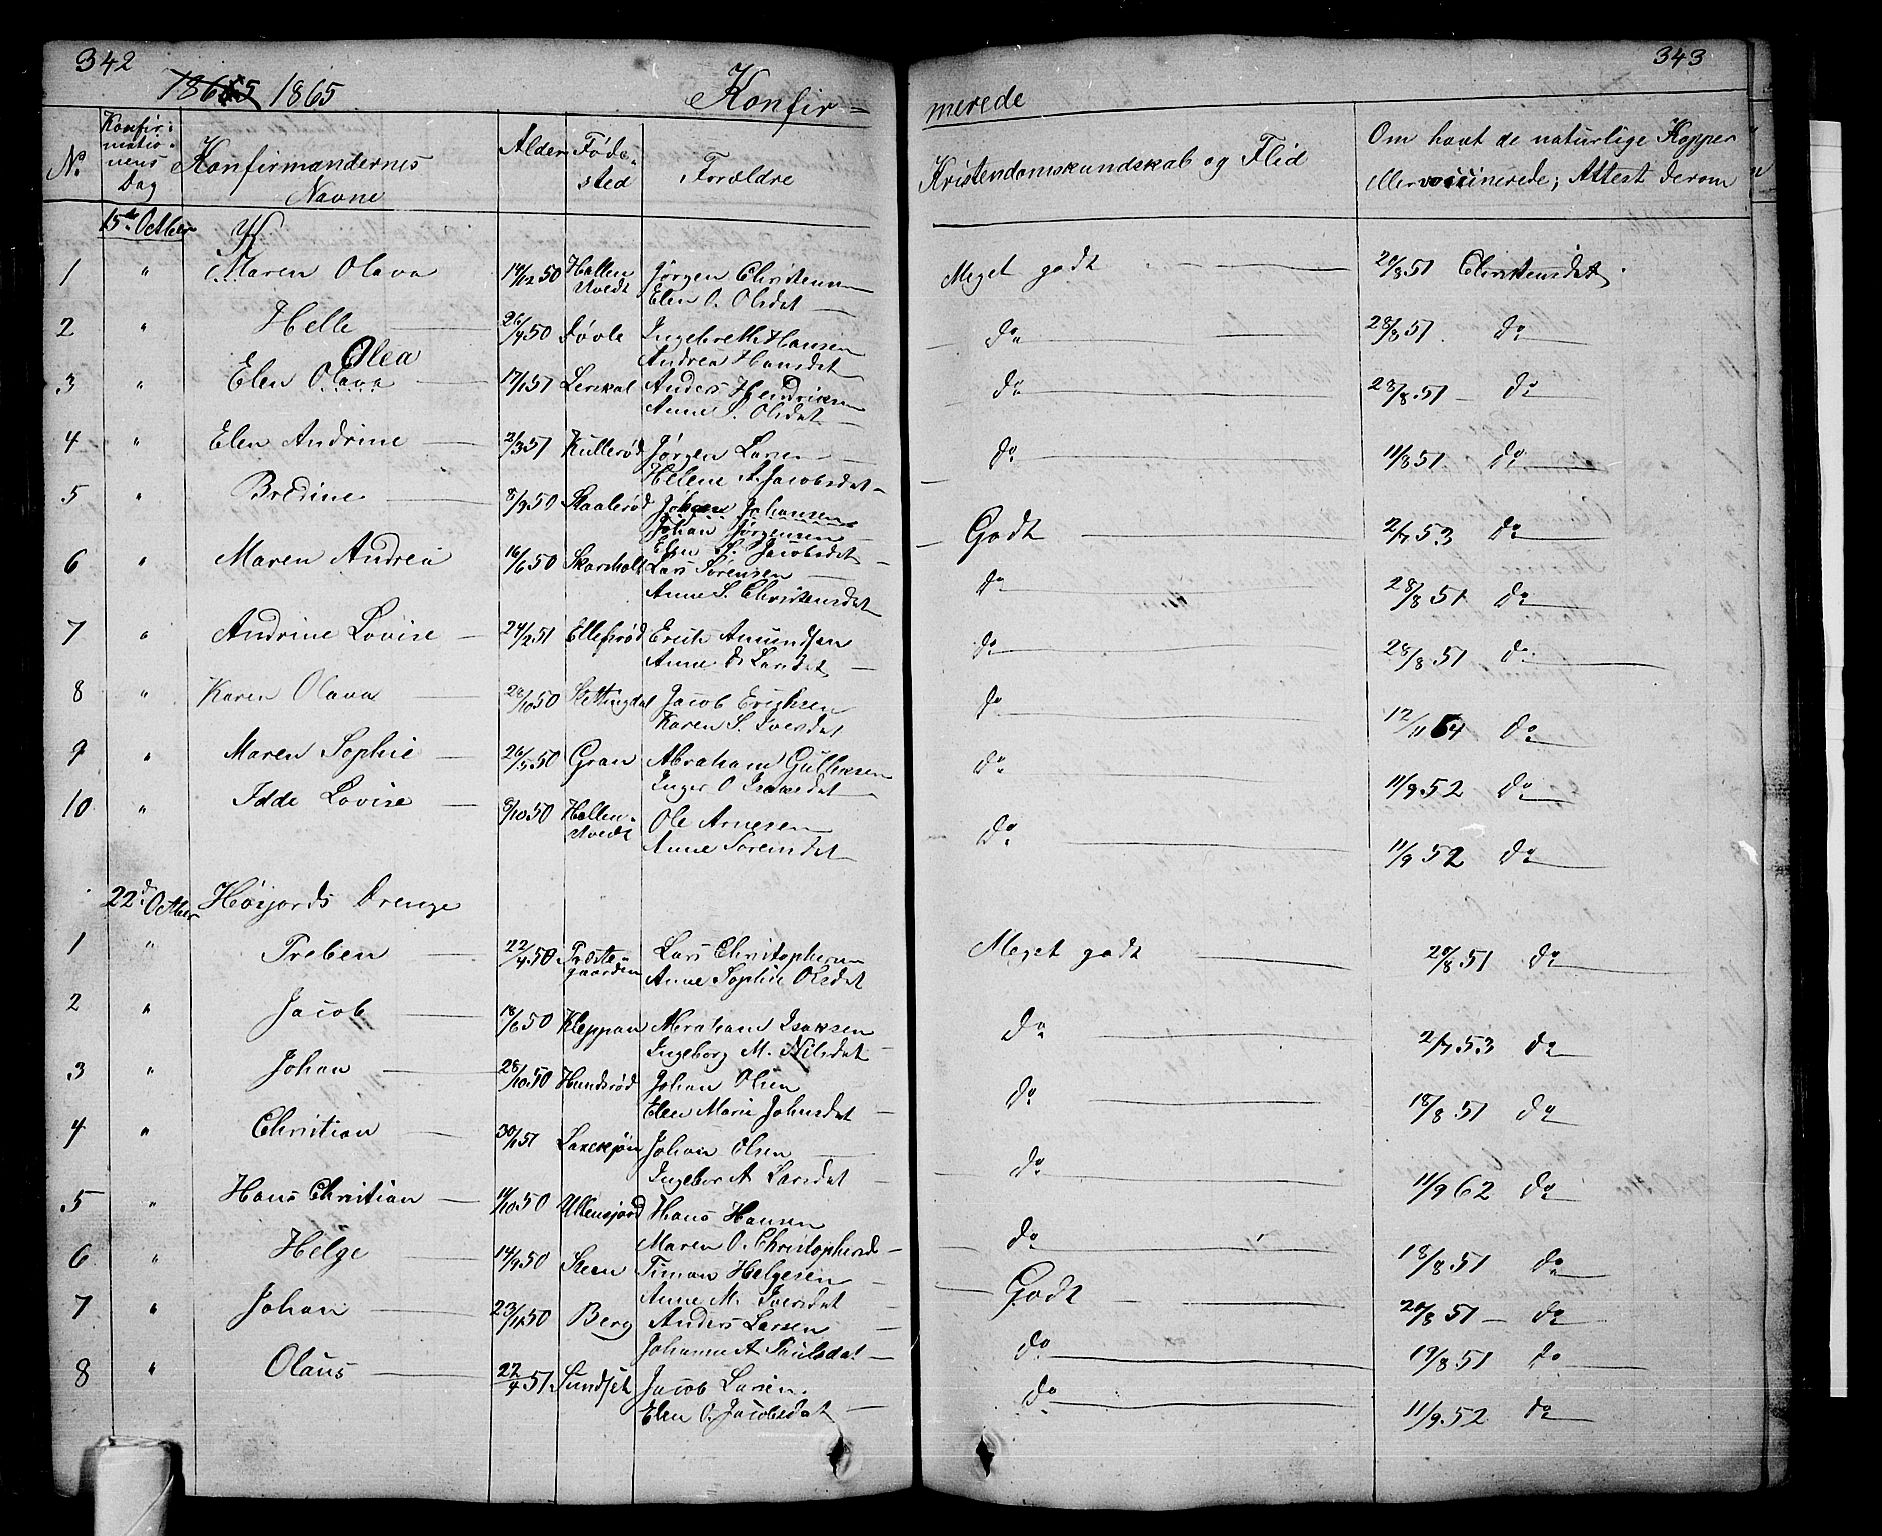 342
18665 1865 Konfir=
N.
Konfir=
matio=
nens
Dag
Konfirmandernes
Navne
Alder
Føde-
sted
Forældre
15de Octber
1 " Maren Olava 14/12 50 Hallen
kvedt Jørgen Christensen
Elen O. Olsdat
2 " Helle 26/4 50 Føvle Ingebreth Hansen
Andrea Hansdat
Olea
3 " Elen Olava 17/1 51 Lerskal Anders Hendriksen
Anne S. Olsdat
4 " Elen Andrine 2/3 51 Kullerød Jørgen Larsen
Helene A. Jacobsdat
5 " Bredine 8/9 50 Skaalerød Johan Johansen
Johan Jørgensen
Elen S. Jacobsdat
6 " Maren Andrea 16/6 50 Skarsholt Lars Sørensen
Anne S. Christensdat
7 " Andrine Lovise 24/2 51 Ellefsrød Erich Amundsen
Anne D. Larsdat
8 " Karen Olava 28/10 50 Slettingdal Jacob Eriksen
Karen S. Iversdat
9 " Maren Sophie 26/5 50 Gran Abraham Gulliksen
Inger O. Isaksdat
10 " Idde Lovise 9/10 50 Hallen-
kvedt Ole Arnesen
Anne Sørensdat
22d Octber Høijords Drenge
1 " Preben 22/4 50 Præste-
gaarden Lars Christophersen
Anne Sophie Olsdat
2 " Jacob 18/6 50 Kleppan Abraham Isaksen
Ingeborg M. Nilsdat
3 " Johan 28/10 50 Hundsrød Johan Olsen
Elen Marie Johnsdat
4 " Christian 30/1 51 Johan Olsen
Ingebor A Larsdat
5 " Hans Christian 11/10 50 Hans Hansen
Maren O. Christophersd
6 " Helge 14/9 50 Steen Timan Helgesen
Anne M. Iversdat
7 " Johan 23/11 50 Berg Anders Larsen
Johanne A Paulsdat
8 " Olaus 22/4 51 Sundset Jacob Larsen
Elen O. Jacobsdat
343
merede
Kristendomskundskab og Flid
Om havt de naturlige Kopper
eller vaccinerede; Attest derom
Meget godt 20/8 51 Christensdat
do 28/8 51 do
do 28/8 51 do
do 11/8 51 do
Godt 2/7 53 do
do 28/8 51 do
do 28/8 51 do
do 12/11 64 do
do 11/9 52 do
do 11/9 52 do
Meget godt 20/8 51 do
do 2/7 53 do
do 18/8 51 do
do 11/9 62 do
do 18/8 51 do
Godt 20/8 51 do
do 19/8 51 do
do 11/9 52 do